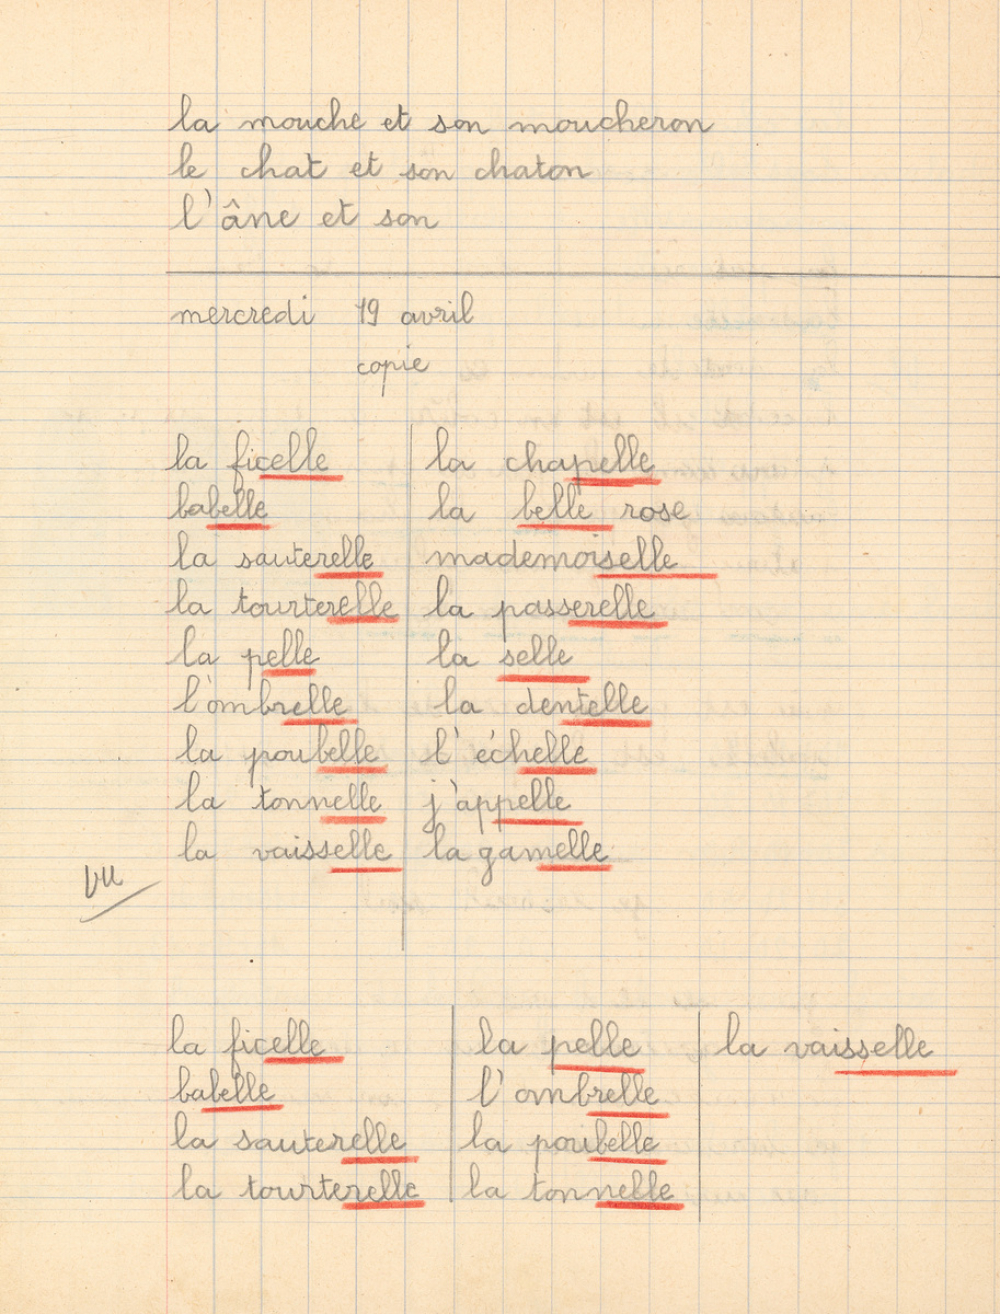 la mouche et son moucheron
le chat et son chaton
l'âne et son
mercredi 19 avril
copie
la ficelle
babelle
la sauterelle
la tourterelle
la pelle
l'ombrelle
la poubelle
la tonnelle
la vaisselle
la chapelle
la belle rose
mademoiselle
la passerelle
la selle
la dentelle
l'échelle
j'appelle
la gamelle
vu
la ficelle
babelle
la sauterelle
la tourterelle
la pelle
l'ombrelle
la poubelle
la tonnelle
la vaisselle